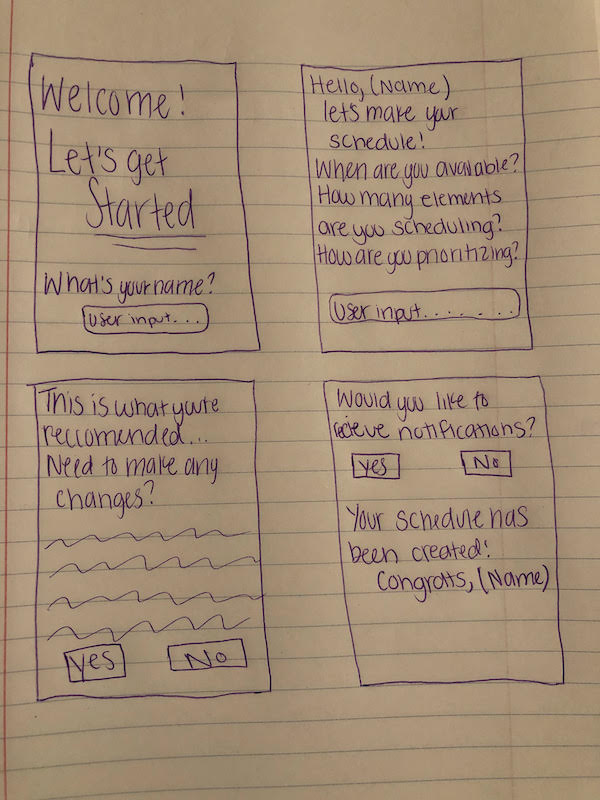 Welcome!
Let's get
Started
What's your name?
User input...
Hello, (Name)
let's make your
schedule!
When are you available?
How many elements
are you scheduling?
How are you prioritizing?
User input.......
This is what you're
reccomended...
Need to make any
changes?
yes
No
Would you like to
recieve notifications?
yes
No
Your schedule has
been created!
Congrats, (Name)